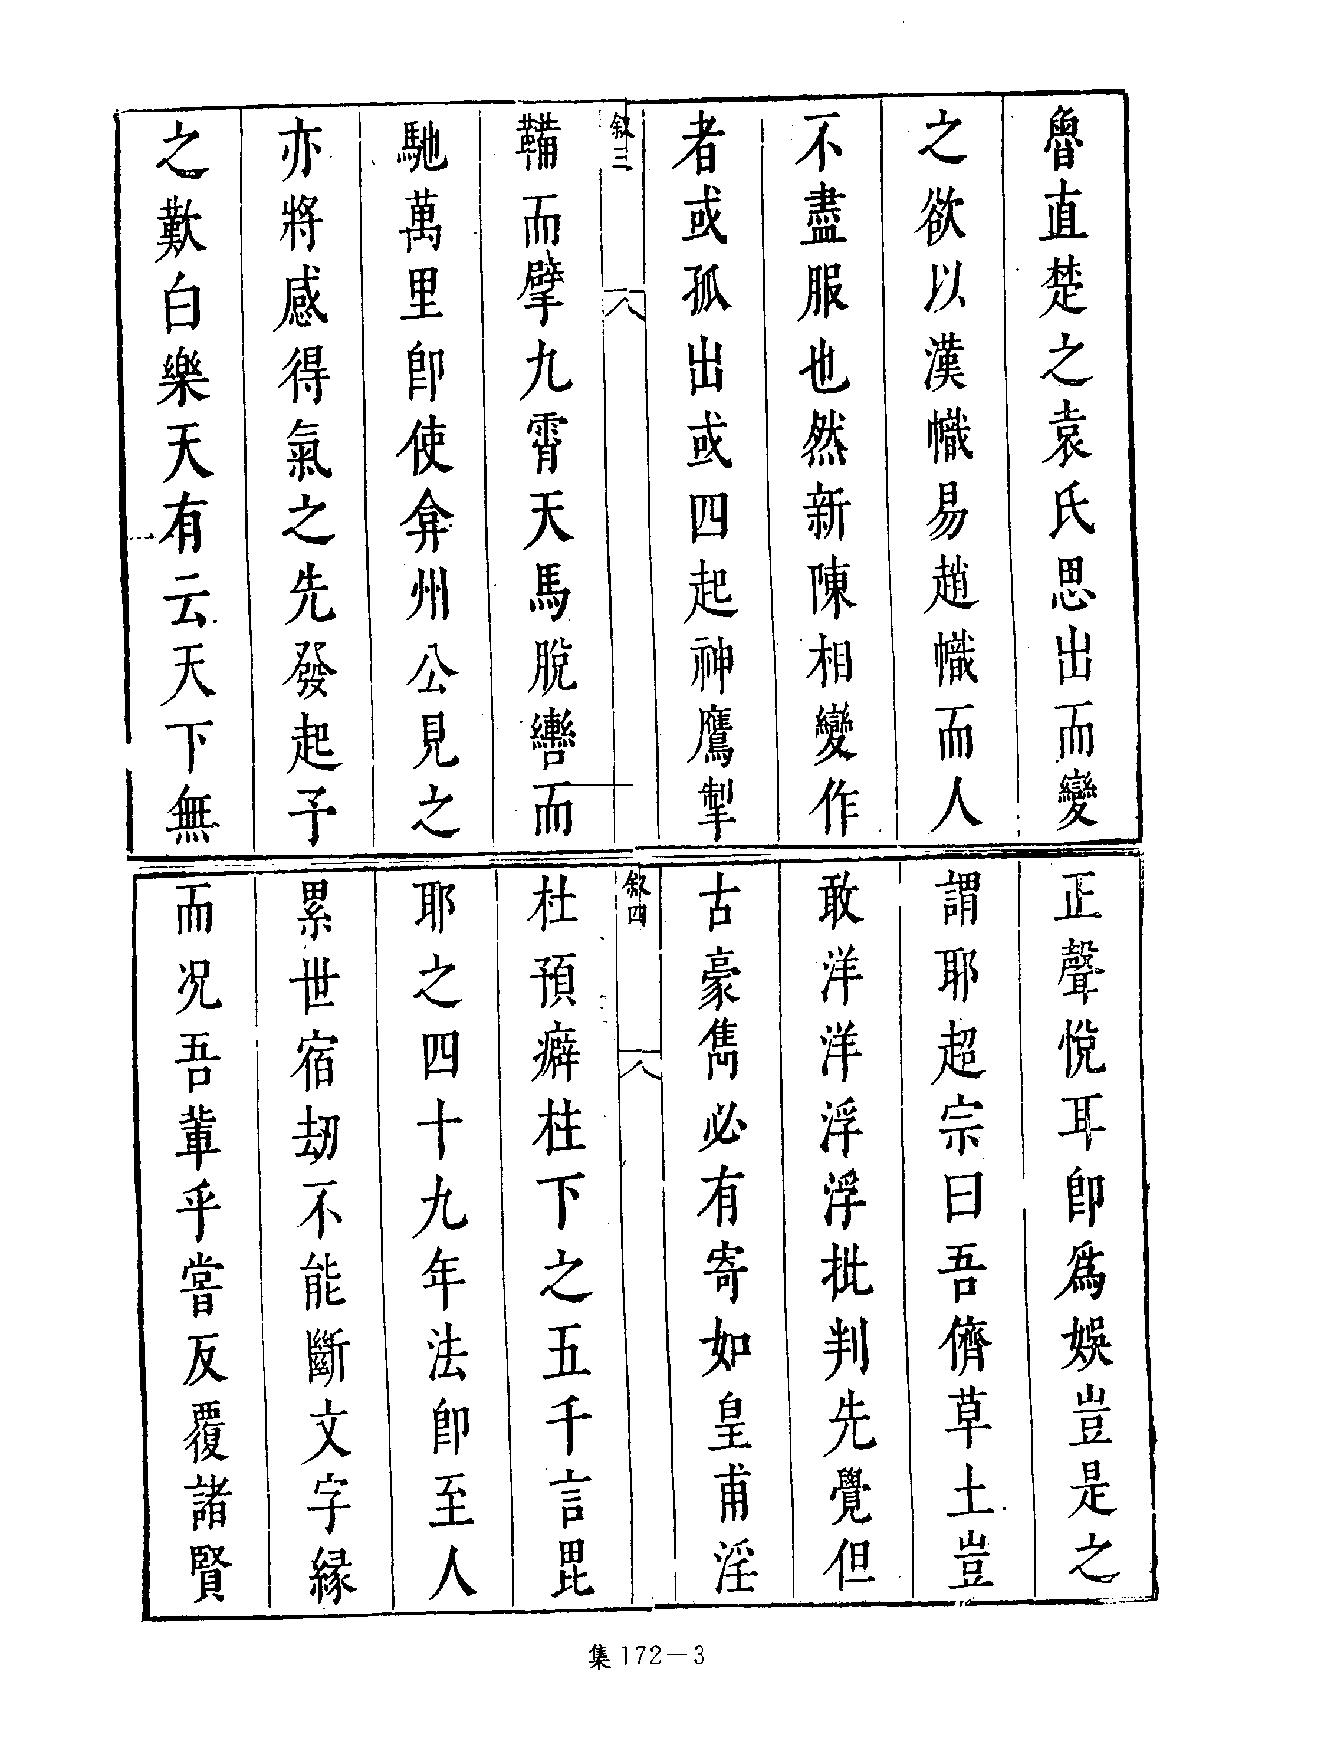 魯直楚之袁氏思出而變
之欲以漢幟易趙幟而人
不盡服也然新陳相變作
者或孤出或四起神鷹掣
敘三
八
鞲而擘九霄天馬脫轡而
馳萬里卽使弇州公見之
亦將感得氣之先發起予
之歎白樂天有云天下無
正聲悅耳卽爲娛豈是之
謂耶超宗曰吾儕草土豈
敢洋洋浮浮批判先覺但
古豪雋必有寄如皇甫淫
敘四
八
杜預癖柱下之五千言毘
耶之四十九年法卽至人
累世宿劫不能斷文字緣
而況吾輩乎嘗反覆諸賢
集 172－3